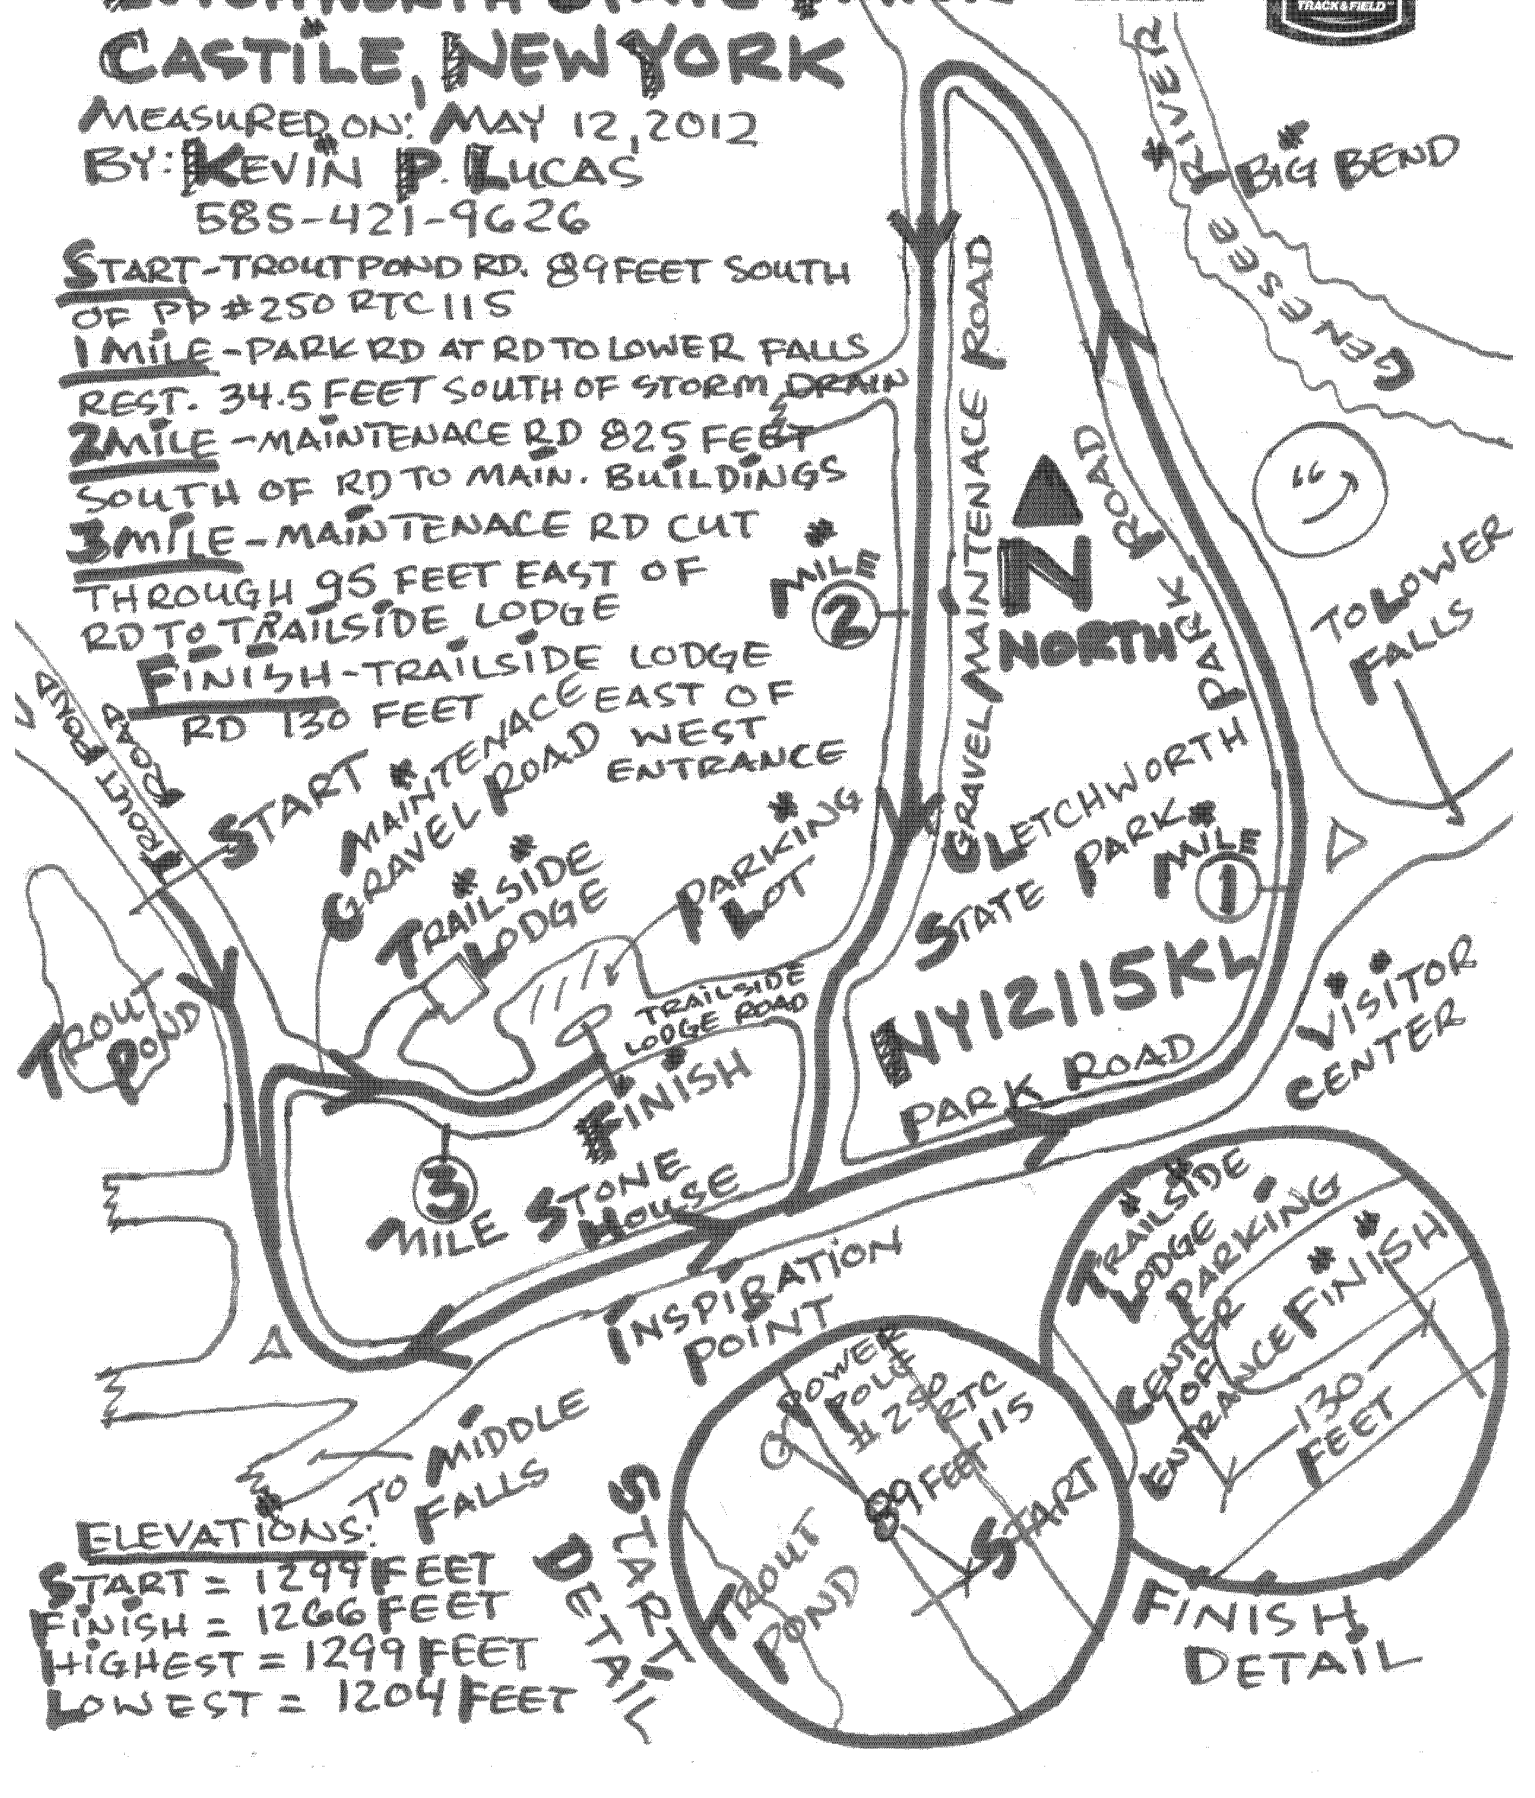 LETCHWORTH STATE PARK
CASTILE, NEW YORK
TRACK & FIELD
MEASURED ON: MAY 12, 2012
BY: KEVIN P. LUCAS
585-421-9626
START-TROUT POND RD. 89 FEET SOUTH
OF PP #250 RTC 115
1 MILE-PARK RD AT RD TO LOWER FALLS
REST. 34.5 FEET SOUTH OF STORM DRAIN
2 MILE-MAINTENACE RD 825 FEET
SOUTH OF RD TO MAIN. BUILDINGS
3 MILE-MAINTENACE RD CUT
THROUGH 95 FEET EAST OF
RD TO TRAILSIDE LODGE
FINISH-TRAILSIDE LODGE
RD 130 FEET EAST OF
WEST
ENTRANCE
GENESEE RIVER
BIG BEND
GRAVEL/MAINTENACE ROAD
PARK ROAD
N
NORTH
MILE
2
TO LOWER
FALLS
TROUT POND
ROAD
START
MAINTENACE
GRAVEL ROAD
TRAILSIDE
LODGE
PARKING
LOT
LETCHWORTH
STATE PARK
MILE
1
NY12115KL
PARK ROAD
VISITOR
CENTER
TROUT
POND
TRAILSIDE
LODGE ROAD
FINISH
3
MILE
STONE
HOUSE
INSPIRATION
POINT
TO MIDDLE
FALLS
TRAILSIDE
LODGE
PARKING
CENTER
OF
ENTRANCE
FINISH
130
FEET
FINISH
DETAIL
POWER
POLE
#250
RTC
115
89 FEET
START
TROUT
POND
START
DETAIL
ELEVATIONS:
START = 1299 FEET
FINISH = 1266 FEET
HIGHEST = 1299 FEET
LOWEST = 1204 FEET